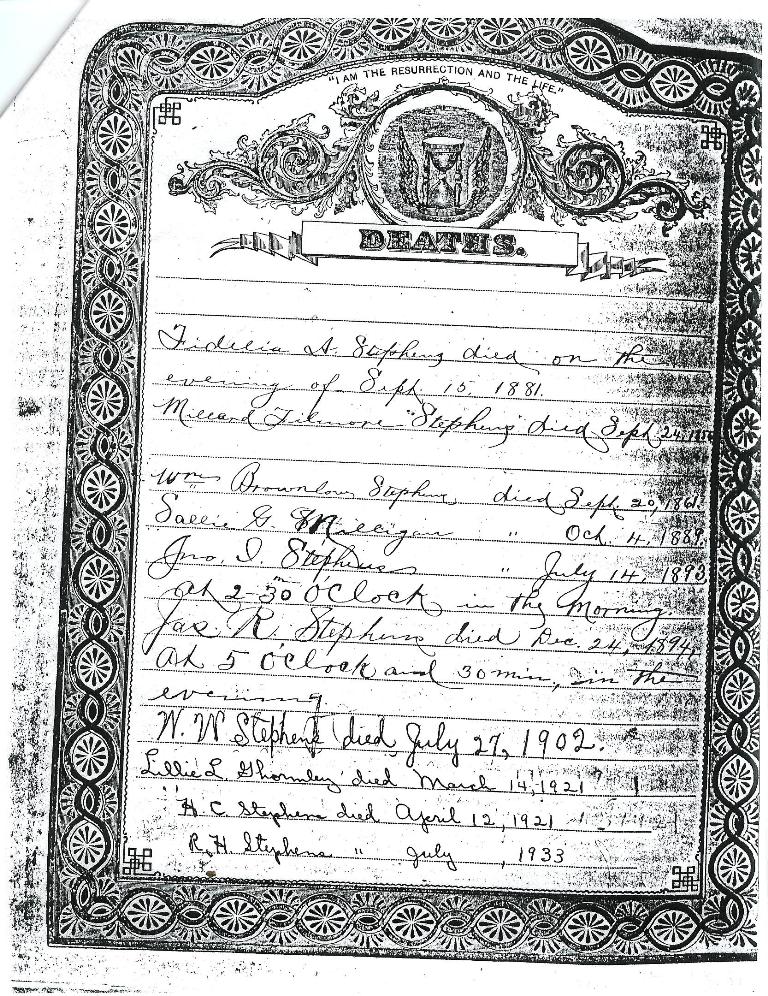 "I AM THE RESURRECTION AND THE LIFE."
DEATHS.
Fidelia A. Stephens died on the
evening of Sept. 15, 1881.
Millard Filmore "Stephens" died Sept 24,
Wm Brownlow Stephens died Sept. 20, 1861
Sallie G. Milligan " Oct. 4, 1889
Jno. I. Stephens " July 14, 1893
At 2-30 O'Clock in the Morning.
Jas. R. Stephens died Dec. 24, 1894,
At 5 O'Clock and 30 min, in the
evening
W. W Stephens died July 27, 1902.
Lillie L Ghormley died March 14, 1921
" H. C. Stephens died April 12, 1921
R. H. Stephens " July , 1933